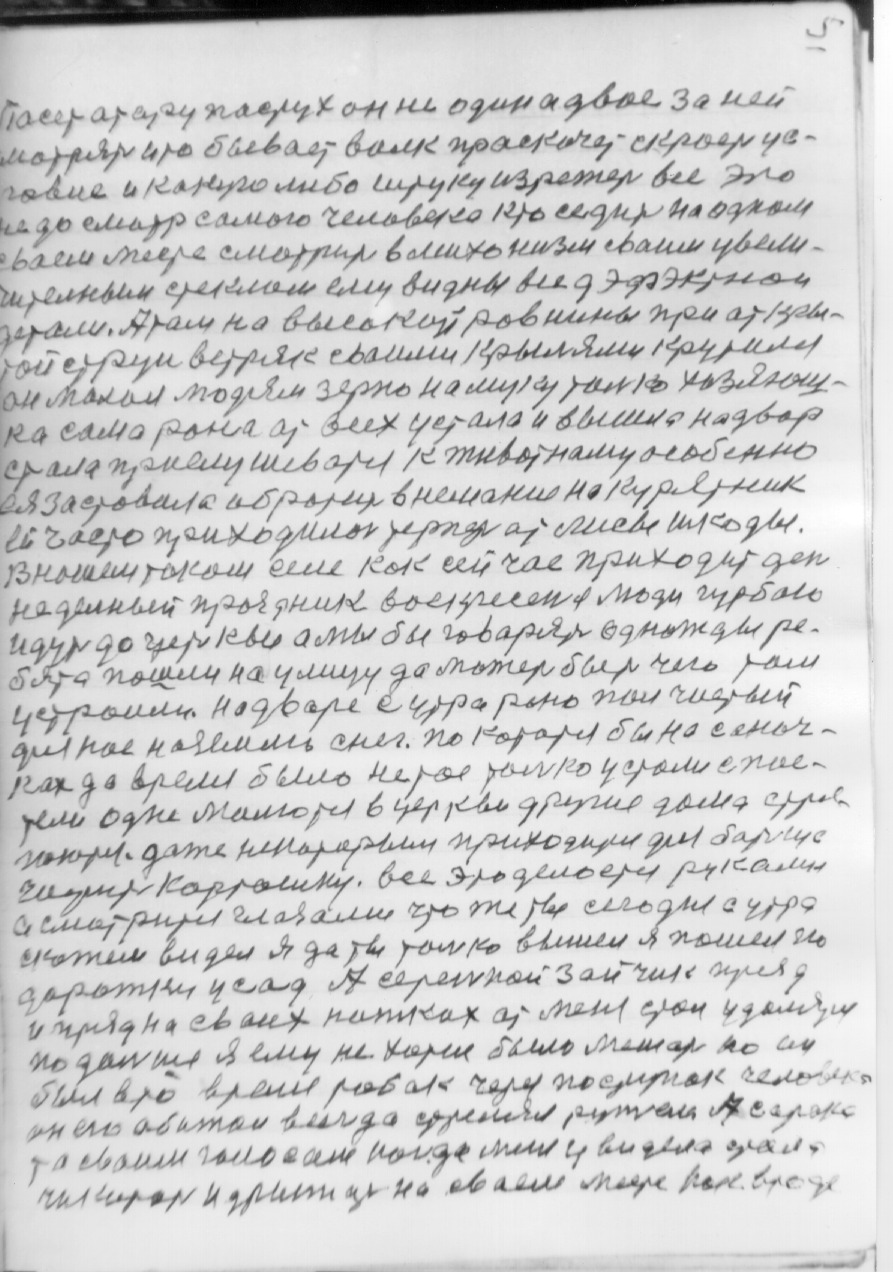 15
Пасет атару пастух он не один а двое за ней
мотрят што бывает волк праскочет скроет ус-
ловие и какуюлибо штуку изрежет все это
недосмотр самого человека кто седит на одном
сваем месте смотрит
чительным стеклом ему видны все
детали. А там на высокой ровнины при аткры-
той струи ветряк своими крылями крутился
он молол людям зерно на муку только хозяюш-
ка сама рана ат всех устала и вышла на двор
стала прислушеватся к животнаму особенно
ея заставила обротит внемание на курятник
ей часто приходилос терпет ат лисы шкоды.
В нашем таком селе как сейчас приходит ден
неделный празник воскресение люди гурбою
идут до церкви а мы бы говарят однажды ре-
бята пошли на улицу да может быт чего там
устроили. На дваре с утра рано пал чистый
для нас на землю снег. Покататся бы на саноч-
ках да время было не тое только устали спас-
тели одне молются в церкви другие дома стря-
пают. даже некоторым приходится для
чистит картошку. все это делается руками
а смотрится глазами что же ты сегодне с утра
скажем видел я да ты только вышел я пошел по
дарожки у сад А серенкой зайчик пряд
и пряд на своих ножках ат меня стал удалятся
подальше я ему не хотел было мешат но он
был в то время робак через поступок человека
он его абижал всегда стрелял ружем А сарока
та своим голосам когда меня увидела стала
чикотат и држат на сваем месте как вроде